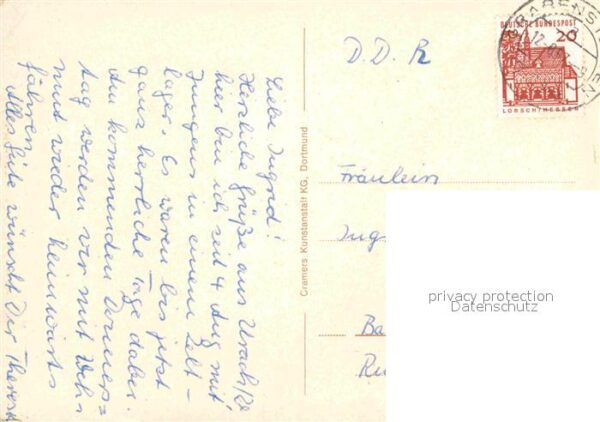 Liebe Ingrid!
Herzliche Grüße aus Urach/
hier bin ich seit 4 Aug mit
Jungens in einem Zelt-
lager. Es waren bis jetzt
ganz herrliche Tage dabei.
Am kommenden Donners=
tag werden wir mit Weh=
mut wieder heimwärts
fahren.
Alles Gute wünscht Dir
Cramers Kunstanstalt KG, Dortmund
DEUTSCHE BUNDESPOST
20
LORSCH/HESSEN
D.D.R
Fräulein
Ing
Ba
Ru
privacy protection
Datenschutz